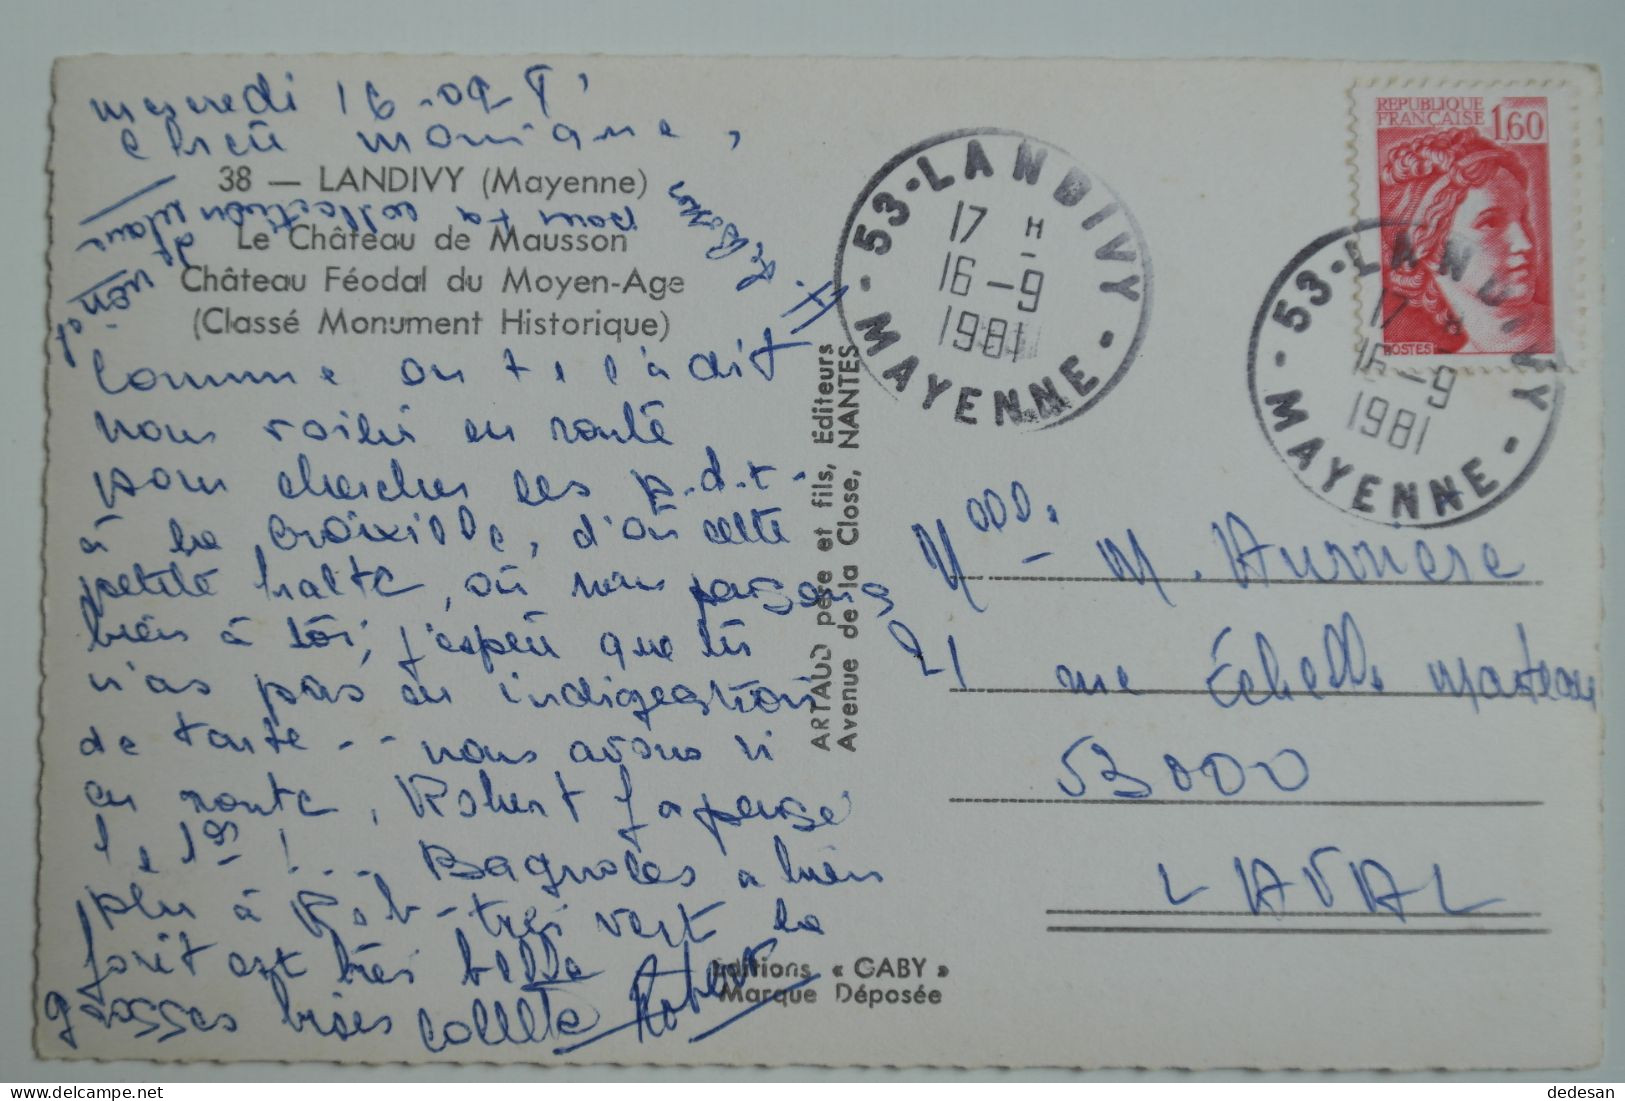 mercredi 16-09 81
chère monique,
38 — LANDIVY (Mayenne)
pour ta collection
Le Château de Mausson
Château Féodal du Moyen-Age
(Classé Monument Historique)
Comme on te l'a dit
nous voilà en route
pour chercher les p.d.t.
à la Croixille, d'où cette
petite halte, où nous pensons
bien à toi, j'espère que tu
n'as pas eu indigestion
de tarte -- nous avons vi
en route, Robert
le 1er ! ... Bagnoles a bien
plu à Rob - très vert la
forêt est très belle
grosses bises Colette Robert
ARTAUD père et fils, Editeurs
Avenue de la Close, NANTES
Editions « GABY »
Marque Déposée
53-LANDIVY
17 H
16-9
1981
MAYENNE
REPUBLIQUE
FRANCAISE
1,60
POSTES
53-LANDIVY
17 H
16-9
1981
MAYENNE
M.
21 rue Échelle Marteau
53000
LAVAL
dedesan